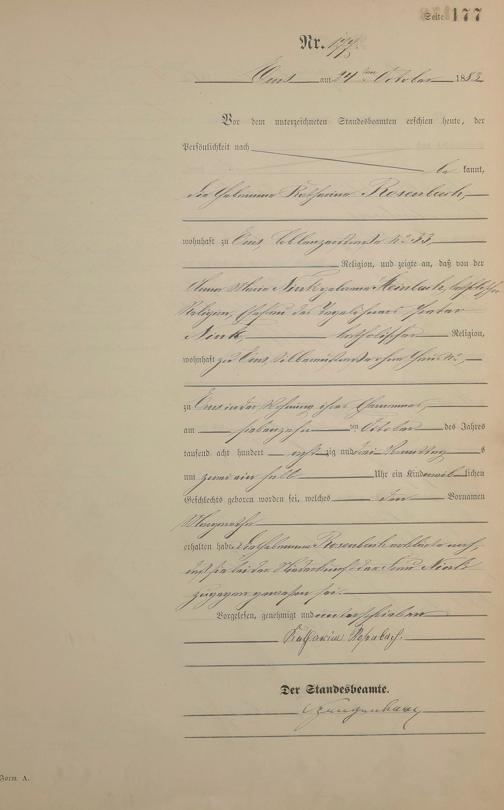 Seite 177
Nr. 177.
Ems am 24 ten October 1883
Vor dem unterzeichneten Standesbeamten erschien heute, der
Persönlichkeit nach
be kannt,
die Hebamme Katharina Rosenbach,
wohnhaft zu Ems, Coblenzerstraße No 33,
Religion, und zeigte an, daß von der
Anna Maria Nink geborene Steinbach, katholischer
Religion, Ehefrau des Tagelöhners Peter
Nink, katholischer Religion,
wohnhaft zu Ems,
zu Ems in der Wohnung ihres Ehemannes,
am siebenzehn ten October des Jahres
tausend acht hundert acht zig und drei Nachmittags
um zwei ein halb Uhr ein Kind weib lichen
Geschlechts geboren worden sei, welches den Vornamen
Margaretha
erhalten habe. Die Hebamme Rosenbach erklärte noch,
daß sie bei der Niederkunft der Frau Nink
zugegen gewesen sei.
Vorgelesen, genehmigt und unterschrieben
Katharina Rosenbach.
Der Standesbeamte.
Form A.